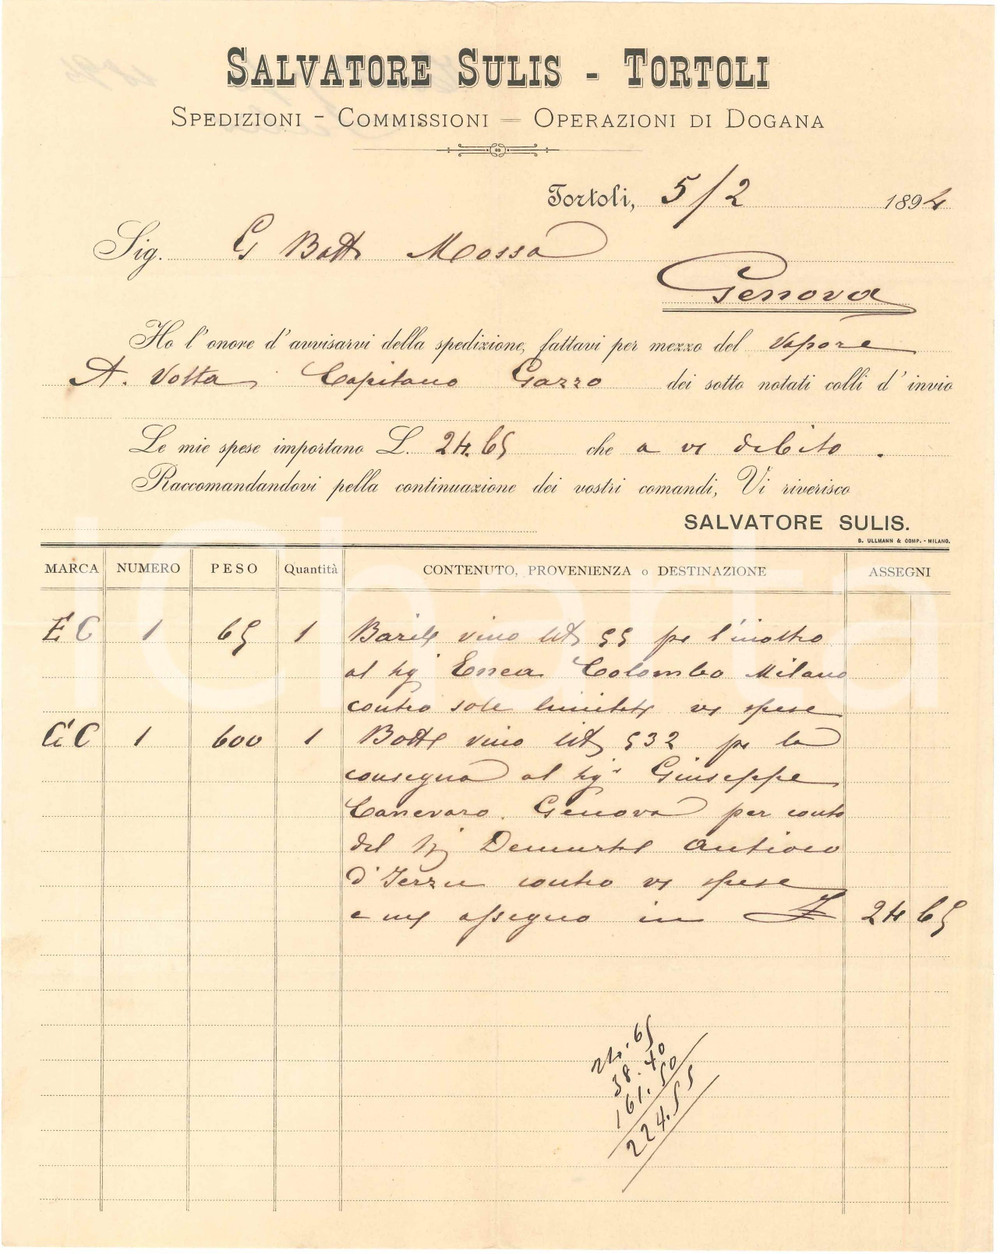 SALVATORE SULIS - TORTOLI
SPEDIZIONI - COMMISSIONI = OPERAZIONI DI DOGANA
Tortoli, 5/2 1894
Sig. G Batt Mossa
Genova
Ho l'onore d'avvisarvi della spedizione, fattavi per mezzo del Vapore
A. Volta Capitano Gazzo dei sotto notati colli d'invio
Le mie spese importano L. 24.65 che a vs debito.
Raccomandandovi pella continuazione dei vostri comandi, Vi riverisco
SALVATORE SULIS.
S. ULLMANN & COMP. - MILANO.
MARCA NUMERO PESO Quantità CONTENUTO, PROVENIENZA o DESTINAZIONE ASSEGNI
EC 1 65 1 Barile vino lit 55 pe l'inoltro
al Sig Enea Colombo Milano
contro sole vs spese
GC 1 600 1 Botte vino lit 532 pe la
consegna al Sigr Giuseppe
Canevaro. Genova per conto
del Sig Demurtas Antioco
d'Jerzu contro vs spese
e assegno in £ 24 65
24.65
38.40
161.50
224.55
ICharta